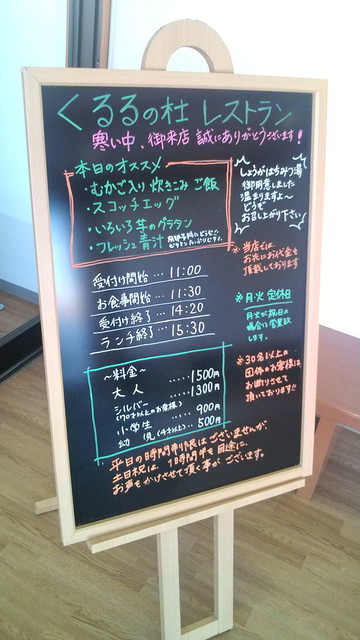 くるるの杜 レストラン
寒い中、御来店 誠にありがとうございます!
本日のオススメ
・むかご入り 炊きこみ ご飯
・スコッチエッグ
・いろいろ芋のグラタン
・フレッシュ青汁
しょうがはちみつ湯
御用意しました
温まりますよ~
どうぞ
お召し上がり下さい
※当店では
お先にお代金を
頂戴しております
受付け開始…11:00
お食事開始…11:30
受付け終了…14:20
ランチ終了…15:30
※月・火 定休日
月・火が祝日の
場合は営業致
します。
~料金~
大人 ‥‥‥1500円
シルバー ‥‥‥1300円
(70才以上のお客様)
小学生 ‥‥‥900円
幼児(4才以上)‥‥500円
※30名以上の
団体のお客様は
お断りさせて
頂いております
平日の時間制限はございませんが
土日祝は、1時間半を目途に、
お声をかけさせて頂く事がございます。